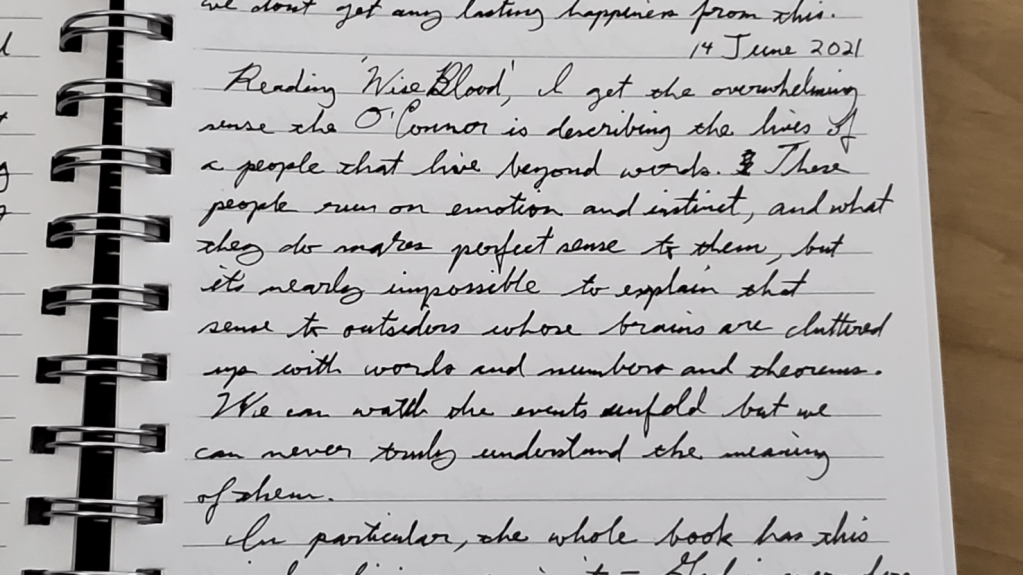 we dont get any lasting happiness from this.
14 June 2021
Reading 'Wise Blood', I get the overwhelming
sense the O'Connor is describing the lives of
a people that live beyond words. These
people run on emotion and instinct, and what
they do makes perfect sense to them, but
it's nearly impossible to explain that
sense to outsiders whose brains are cluttered
up with words and numbers and theorems.
We can watch the events unfold but we
can never truly understand the meaning
of them.
In particular, the whole book has this